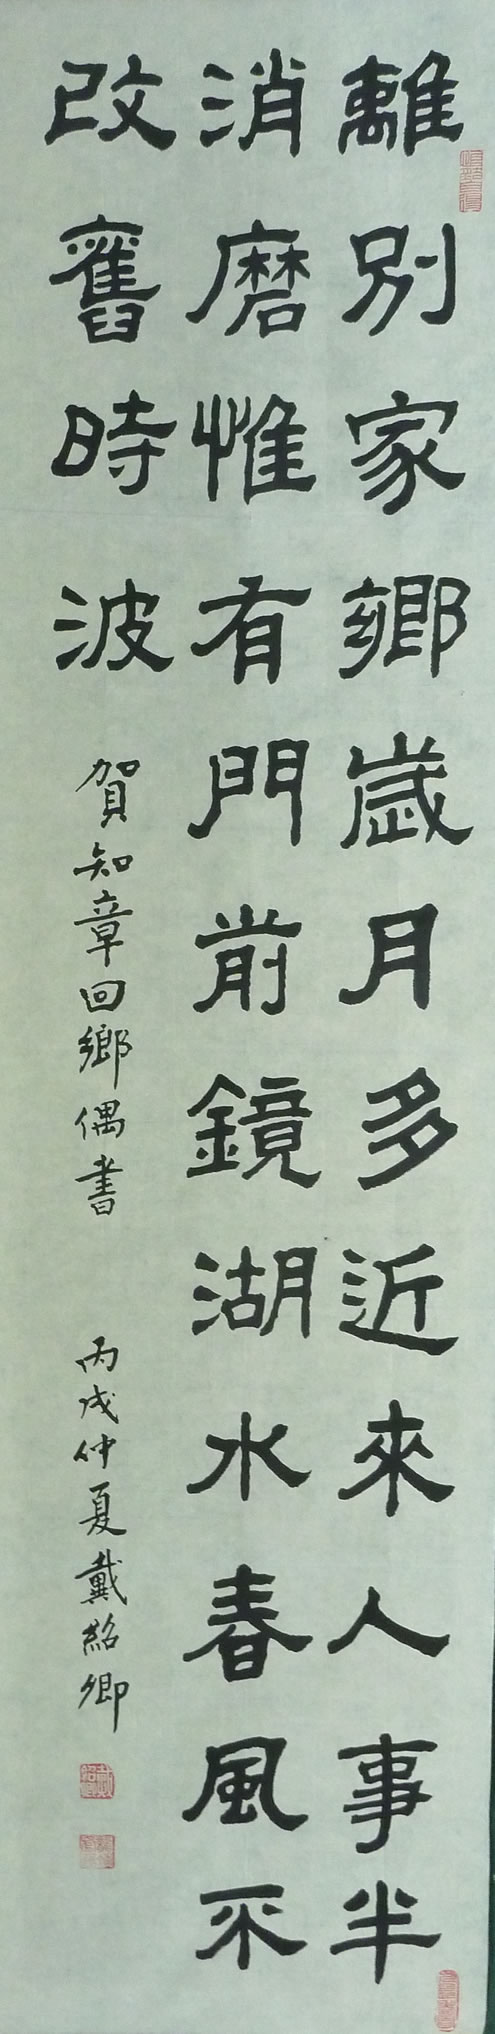 離別家鄉歲月多近來人事半
消磨惟有門前鏡湖水春風不
改舊時波
賀知章回鄉偶書
丙戌仲夏戴紹卿